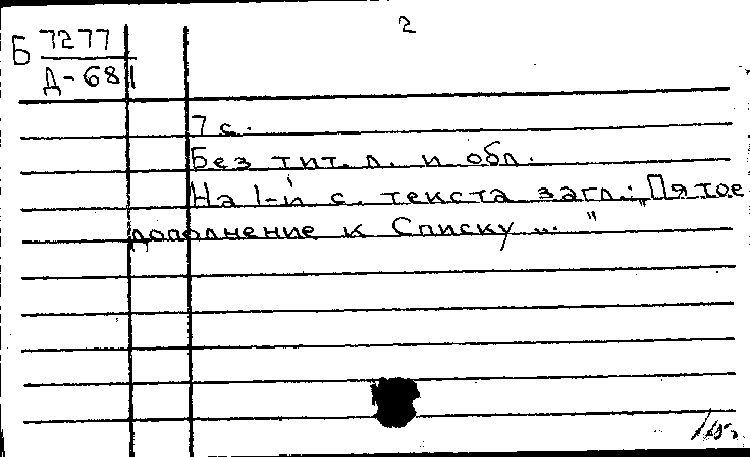 2
Б 7277
Д-681
7 с.
Без тит. л. и обл.
На 1-й с. текста загл.: „Пятое
дополнение к Списку ... "